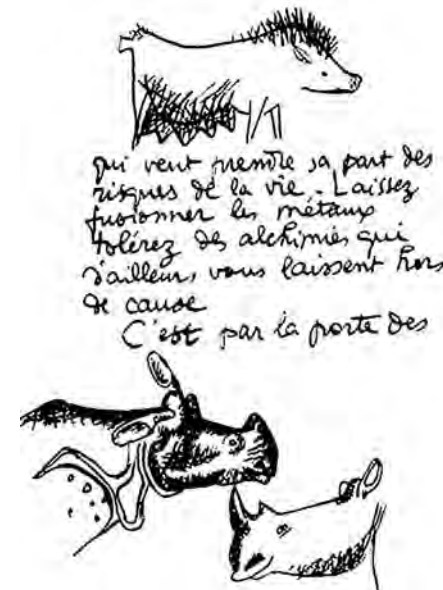 qui veut prendre sa part des
risques de la vie. Laissez
fusionner les métaux
tolérez des alchimies qui
d'ailleurs vous laissent hors
de cause
C'est par la porte des